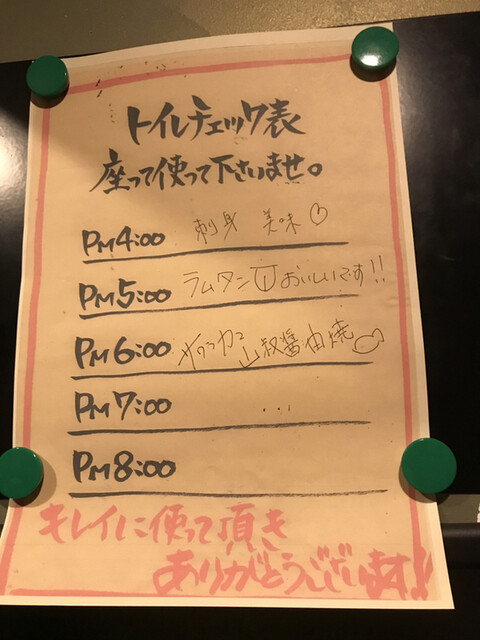 トイレチェック表
座って使って下さいませ。
PM4:00 刺身 美味
PM5:00 ラムタン おいしいです!!
PM6:00 山椒醤油焼
PM7:00 ...
PM8:00
キレイに使って頂き
ありがとうございます!!